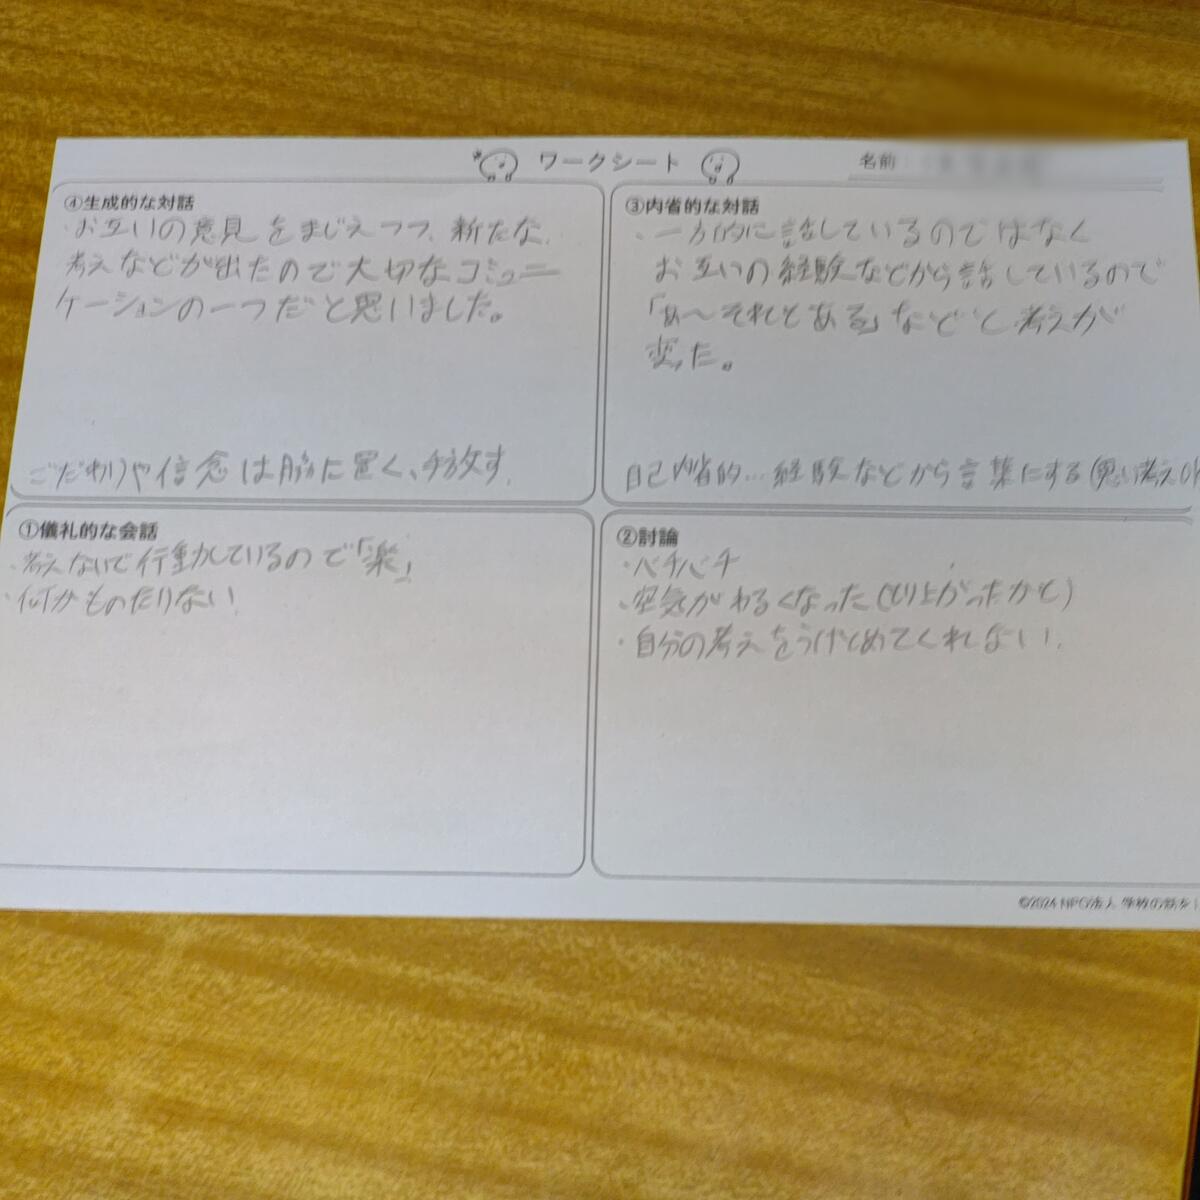 ワークシート
名前
④生成的な対話
・お互いの意見をまじえつつ、新たな
考えなどが出たので大切なコミュニ
ケーションの一つだと思いました。
こだわりや信念は脇に置く、手放す
③内省的な対話
・一方的に話しているのではなく
お互いの経験などから話しているので
「あ〜それもある」などと考えが
変った。
自己内省的…経験などから言葉にする(思い考え
①儀礼的な会話
・考えないで行動しているので「楽」
・何かものたりない
②討論
・バチバチ
・空気がわるくなった(もり上がったかも)
・自分の考えをうけとめてくれない
©2024 NPO法人 学校の話を